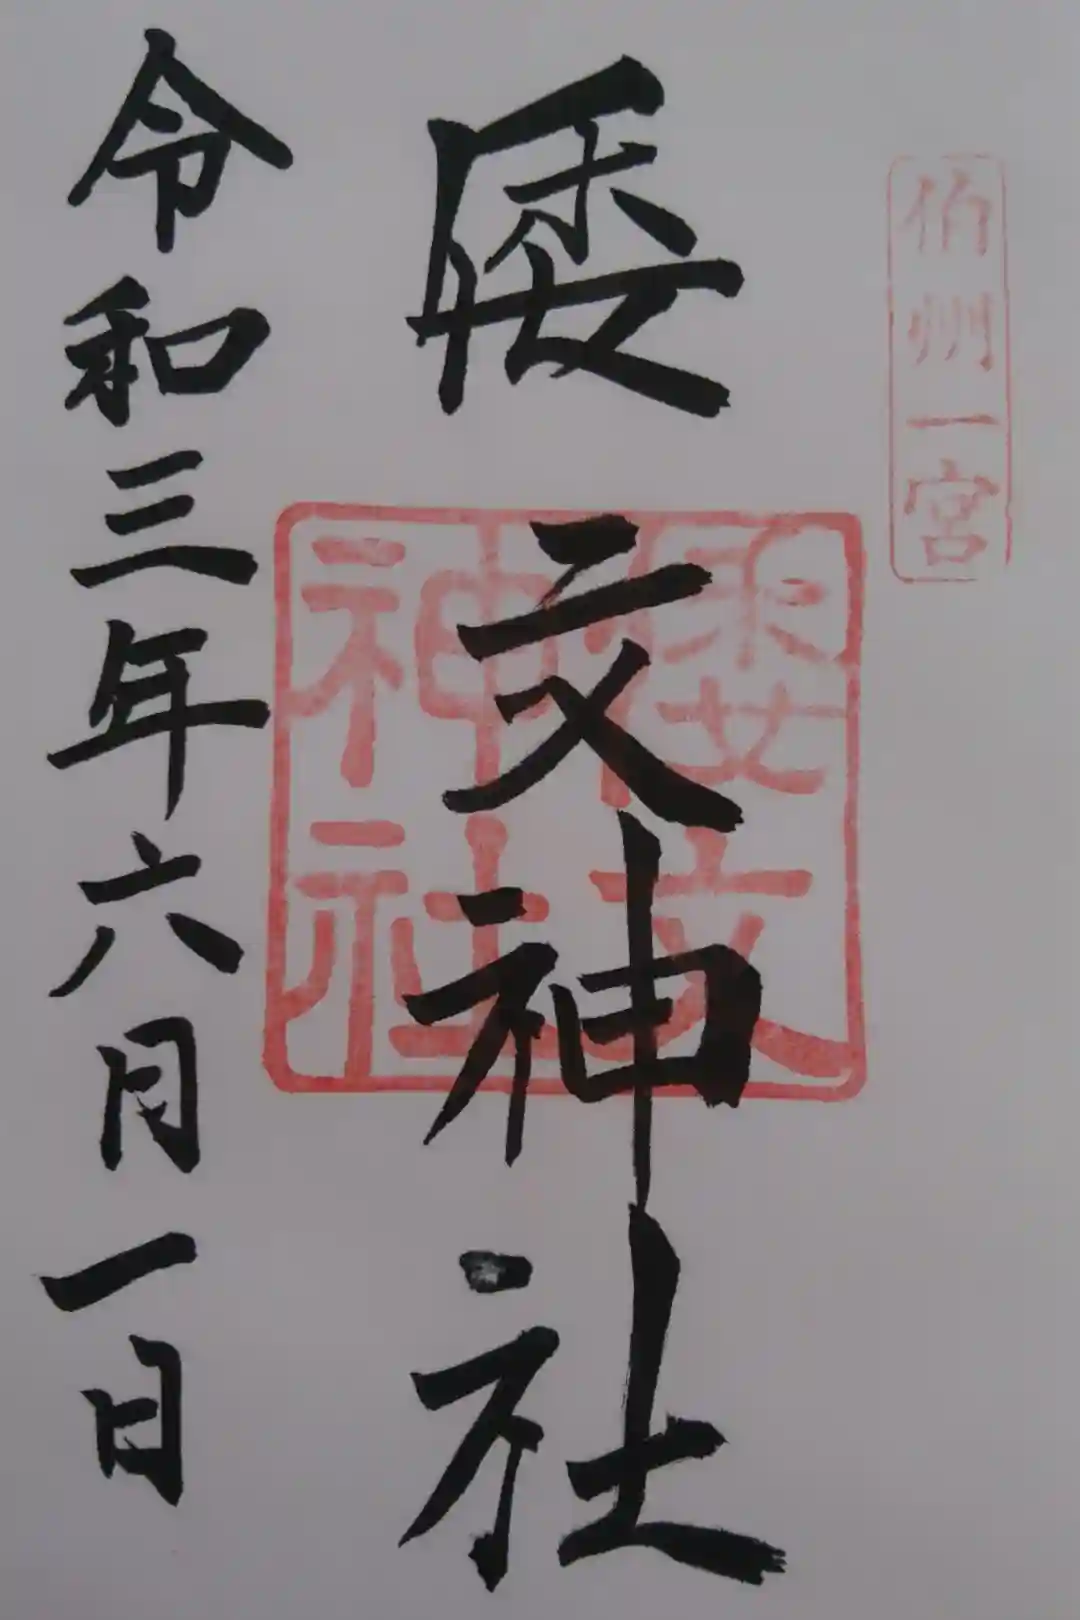 伯州一宮
倭文神社
倭文
神社
令和三年六月一日